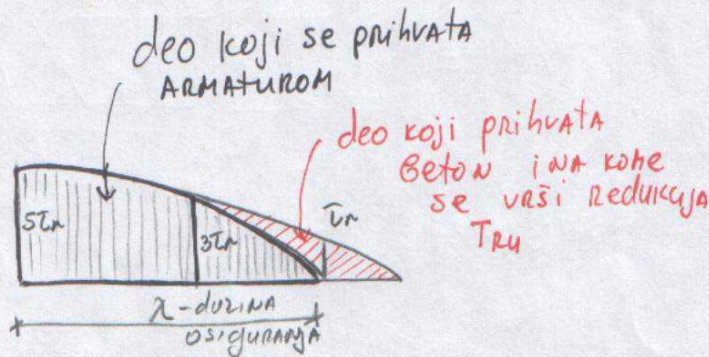 deo koji se prihvata
ARMATUROM
deo koji prihvata
beton i na kome
se vrši redukcija
TRU
5τr
3τr
τr
λ-dužina
osiguranja